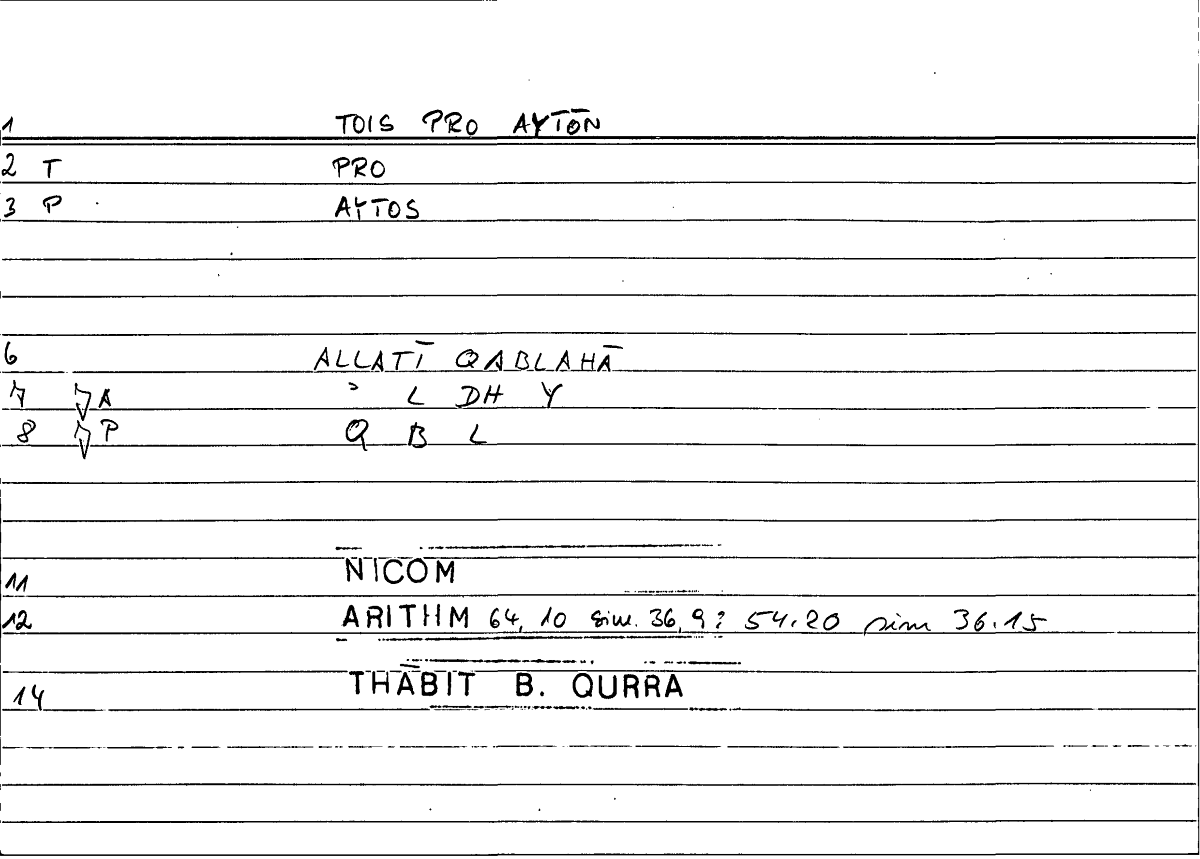 1 TOIS PRO AYTŌN
2 T PRO
3 P AYTOS
6 ALLATĪ QABLAHĀ
7 A ʾ L DH Y
8 P Q B L
11 NICOM
12 ARITHM 64, 10 sim. 36, 9; 54.20 sim 36.15
14 THĀBIT B. QURRA